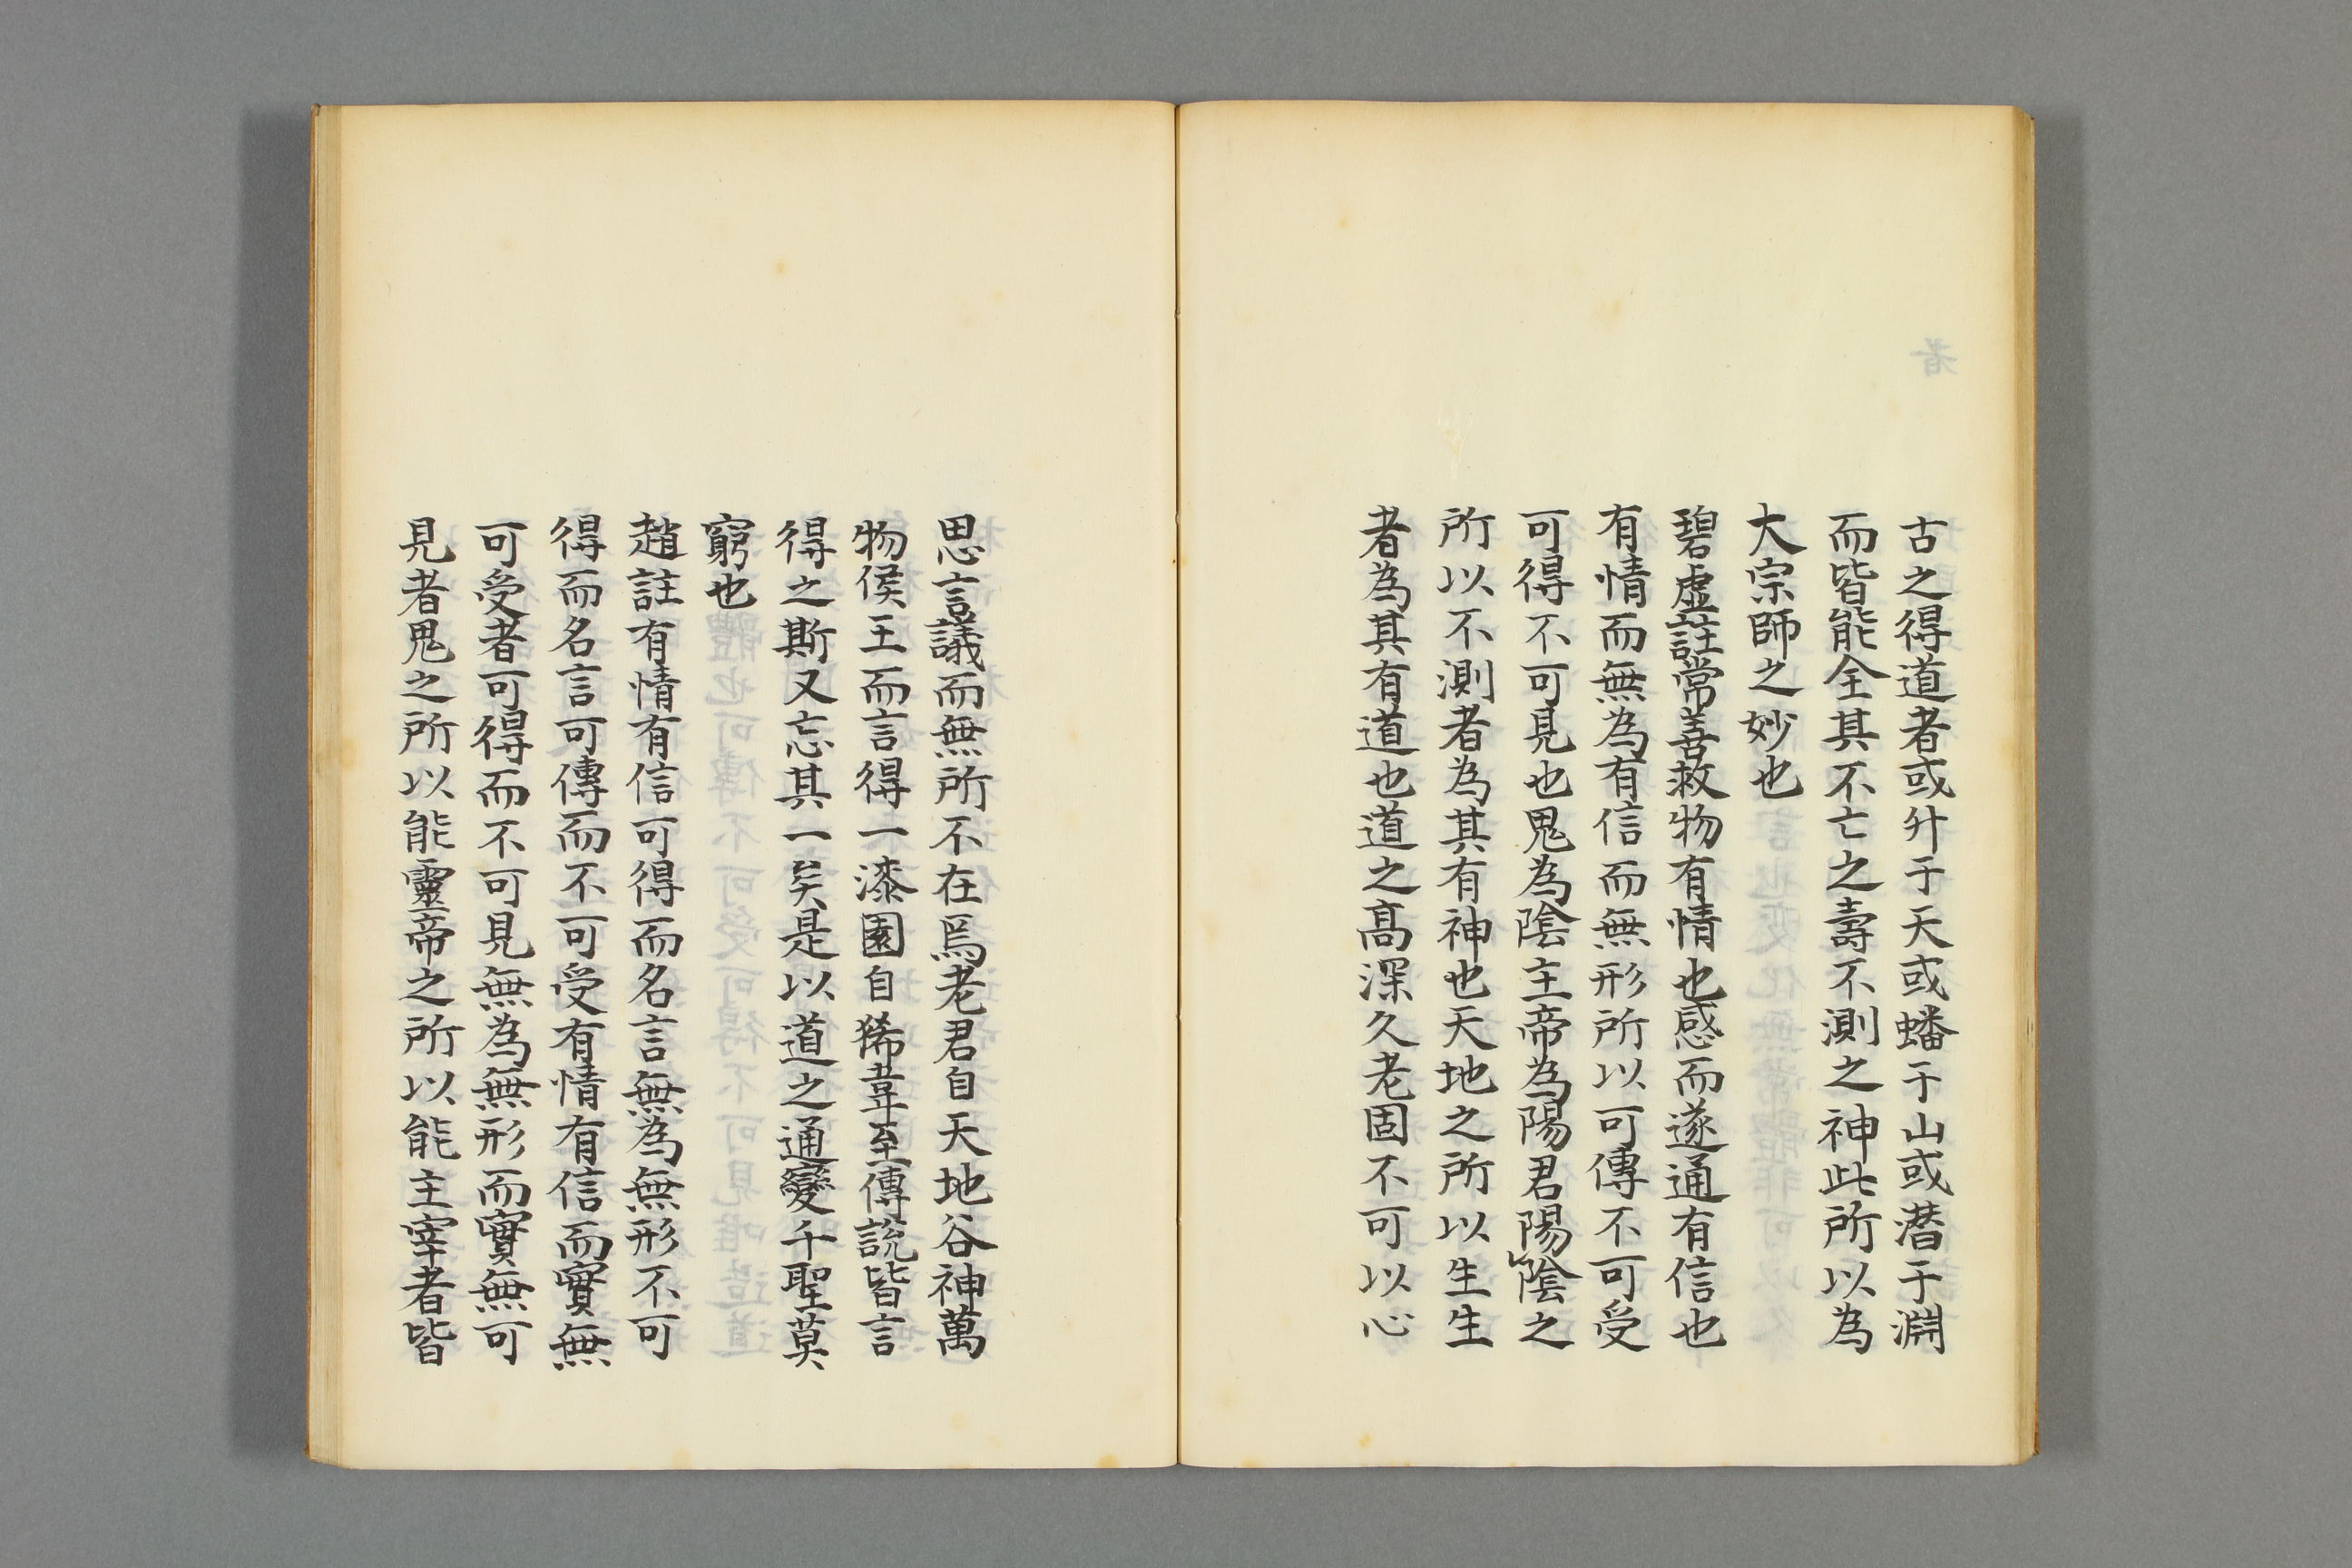 古之得道者或升于天或蟠于山或潛于淵
而皆能全其不亡之壽不測之神此所以為
大宗師之妙也
碧虛註常善救物有情也感而遂通有信也
有情而無為有信而無形所以可傳不可受
可得不可見也鬼為陰主帝為陽君陽陰之
所以不測者為其有神也天地之所以生生
者為其有道也道之高深久老固不可以心
思言議而無所不在焉老君自天地谷神萬
物侯王而言得一漆園自狶韋至傅說皆言
得之斯又忘其一矣是以道之通變千聖莫
窮也
趙註有情有信可得而名言無為無形不可
得而名言可傳而不可受有情有信而實無
可受者可得而不可見無為無形而實無可
見者鬼之所以能靈帝之所以能主宰者皆